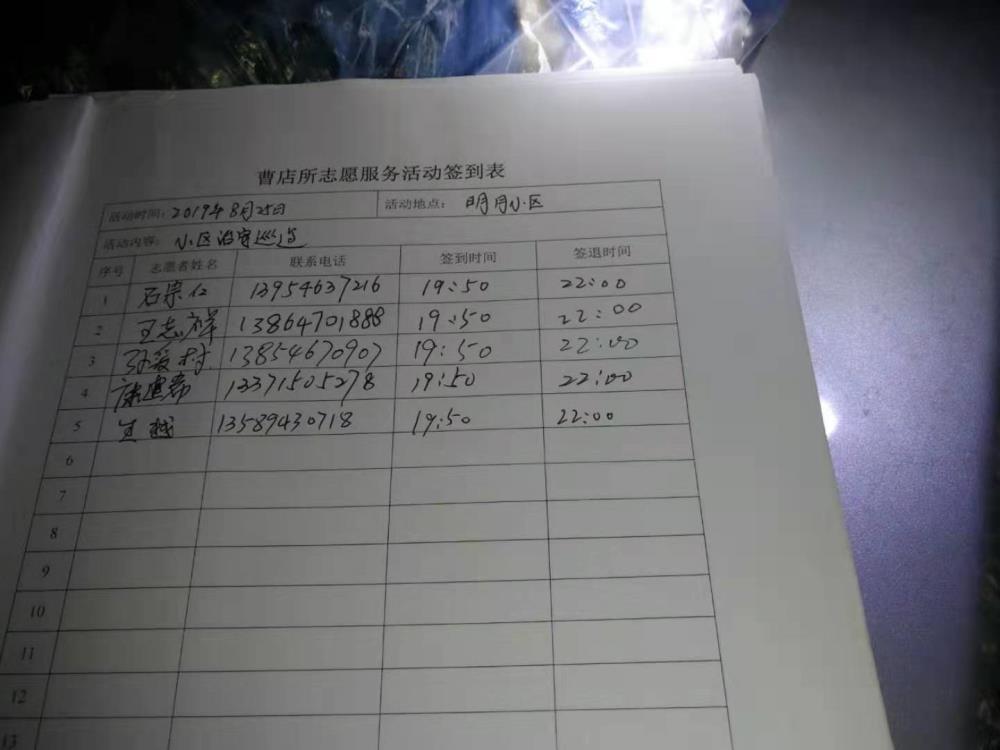 曹店所志愿服务活动签到表
活动时间：2019年8月25日 活动地点：明月小区
活动内容：小区治安巡逻
序号 志愿者姓名 联系电话 签到时间 签退时间
1 石崇仁 13954637216 19:50 22:00
2 王志祥 13864701888 19:50 22:00
3 孙爱村 13854670907 19:50 22:00
4 康建希 13371505278 19:50 22:00
5 越 13589430718 19:50 22:00
6
7
8
9
10
11
12
13